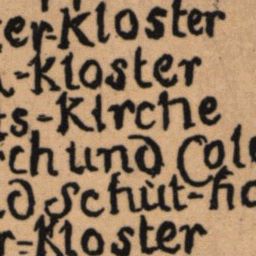 er-Kloster
-Kloster
ts-Kirche
ch und Col
d Schut-ho
r-Kloster